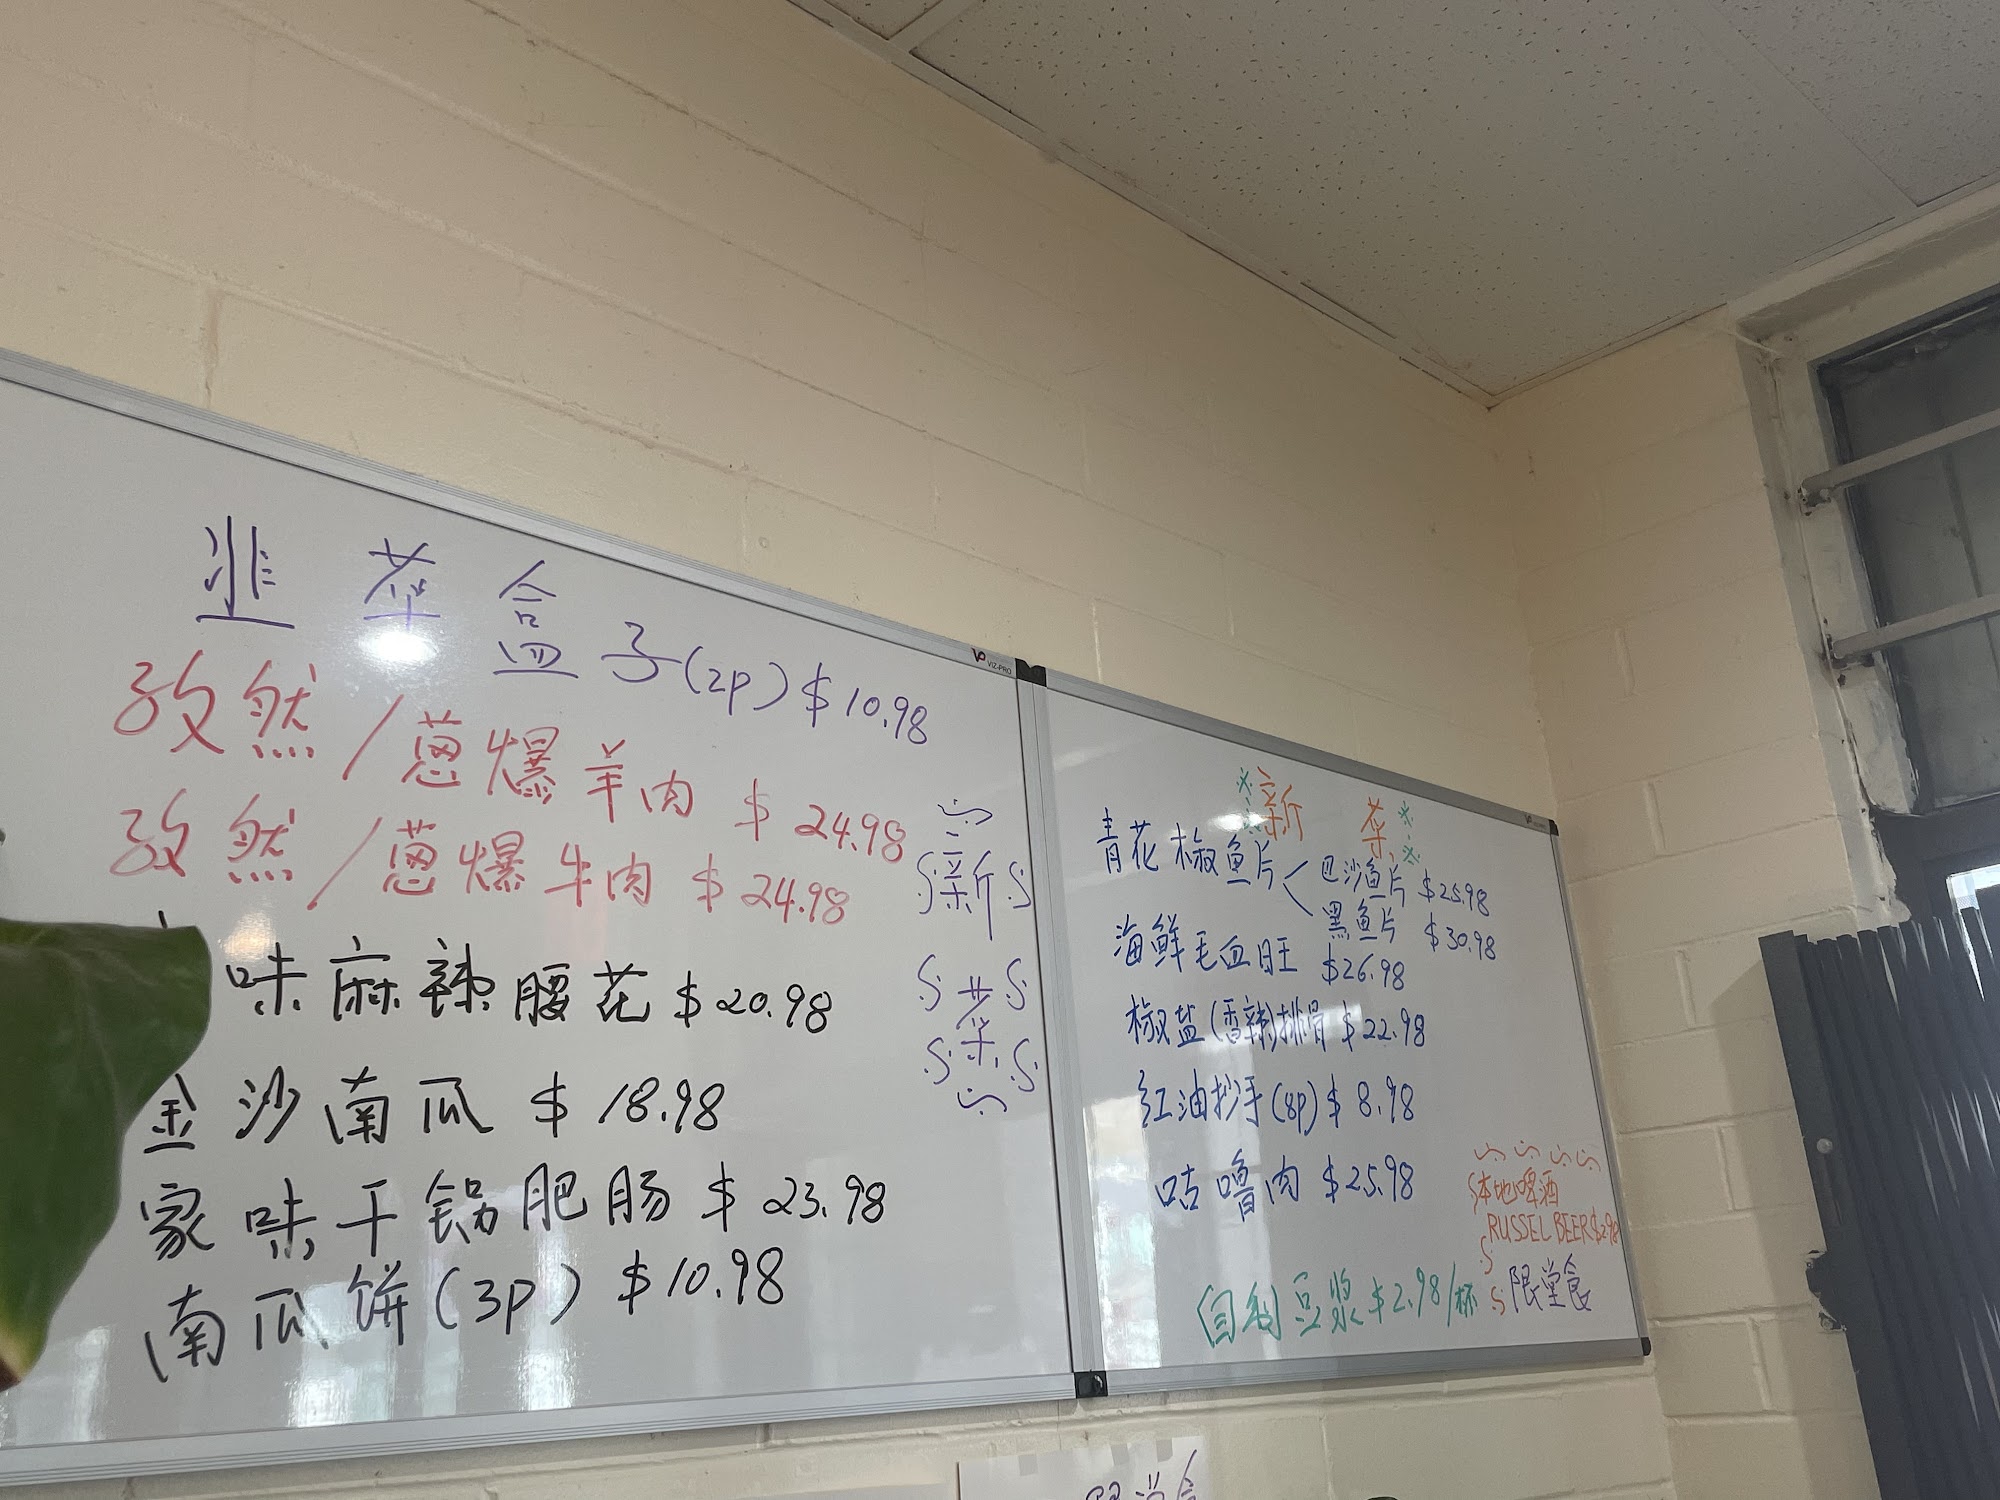 韭菜盒子(2P) $10.98
孜然/蔥爆羊肉 $24.98
孜然/蔥爆牛肉 $24.98
味麻辣腰花 $20.98
金沙南瓜 $18.98
家味干锅肥肠 $23.98
南瓜饼(3P) $10.98
新
菜
VIZ-PRO
新 菜
青花椒鱼片 巴沙鱼片 $25.98
黑鱼片 $30.98
海鲜毛血旺 $26.98
椒盐(香辣)排骨 $22.98
红油抄手(8P) $8.98
咕噜肉 $25.98
本地啤酒
RUSSEL BEER $2.98
限堂食
自制豆浆 $2.98/杯